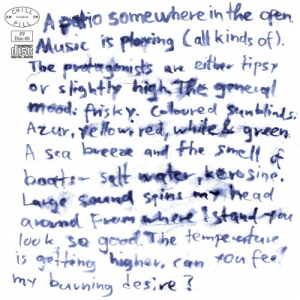 CHILL
PILL
PP
Disc-06
A patio somewhere in the open.
Music is playing (all kinds of).
The protagonists are either tipsy
or slightly high. The general
mood: frisky. Coloured sunblinds:
Azur, yellow, red, white & green.
A sea breeze and the smell of
boats - salt water, kerosine.
Large sound spins my head
around From where I stand you
look so good. The temperature
is getting higher, can you feel
my burning desire?